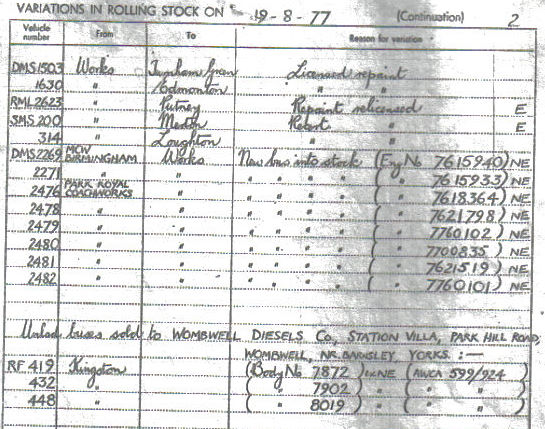 VARIATIONS IN ROLLING STOCK ON 19-8-77 (Continuation) 2
Vehicle number From To Reason for variation
DMS1503 Works Turnham Green Licensed repaint
1630 " Edmonton " "
RML2623 " Putney Repaint relicensed E
SMS 200 " Merton Recert " E
314 " Loughton " "
DMS2269 MCW BIRMINGHAM Works New bus into stock (Eng No 7615940) NE
2271 " " " " " " ( " 7615933) NE
2476 PARK ROYAL COACHWORKS " " " " " ( " 7618364) NE
2478 " " " " " " ( " 7621798) NE
2479 " " " " " " ( " 7760102) NE
2480 " " " " " " ( " 7700835) NE
2481 " " " " " " ( " 7621519) NE
2482 " " " " " " ( " 7760101) NE
Unlicd buses sold to WOMBWELL DIESELS Co., STATION VILLA, PARK HILL ROAD,
WOMBWELL, NR. BARNSLEY, YORKS. :—
RF 419 Kingston (Body No 7872) NE (AWCA 599/924)
432 " ( " 7902) " ( " " )
448 " ( " 8019) " ( " " )